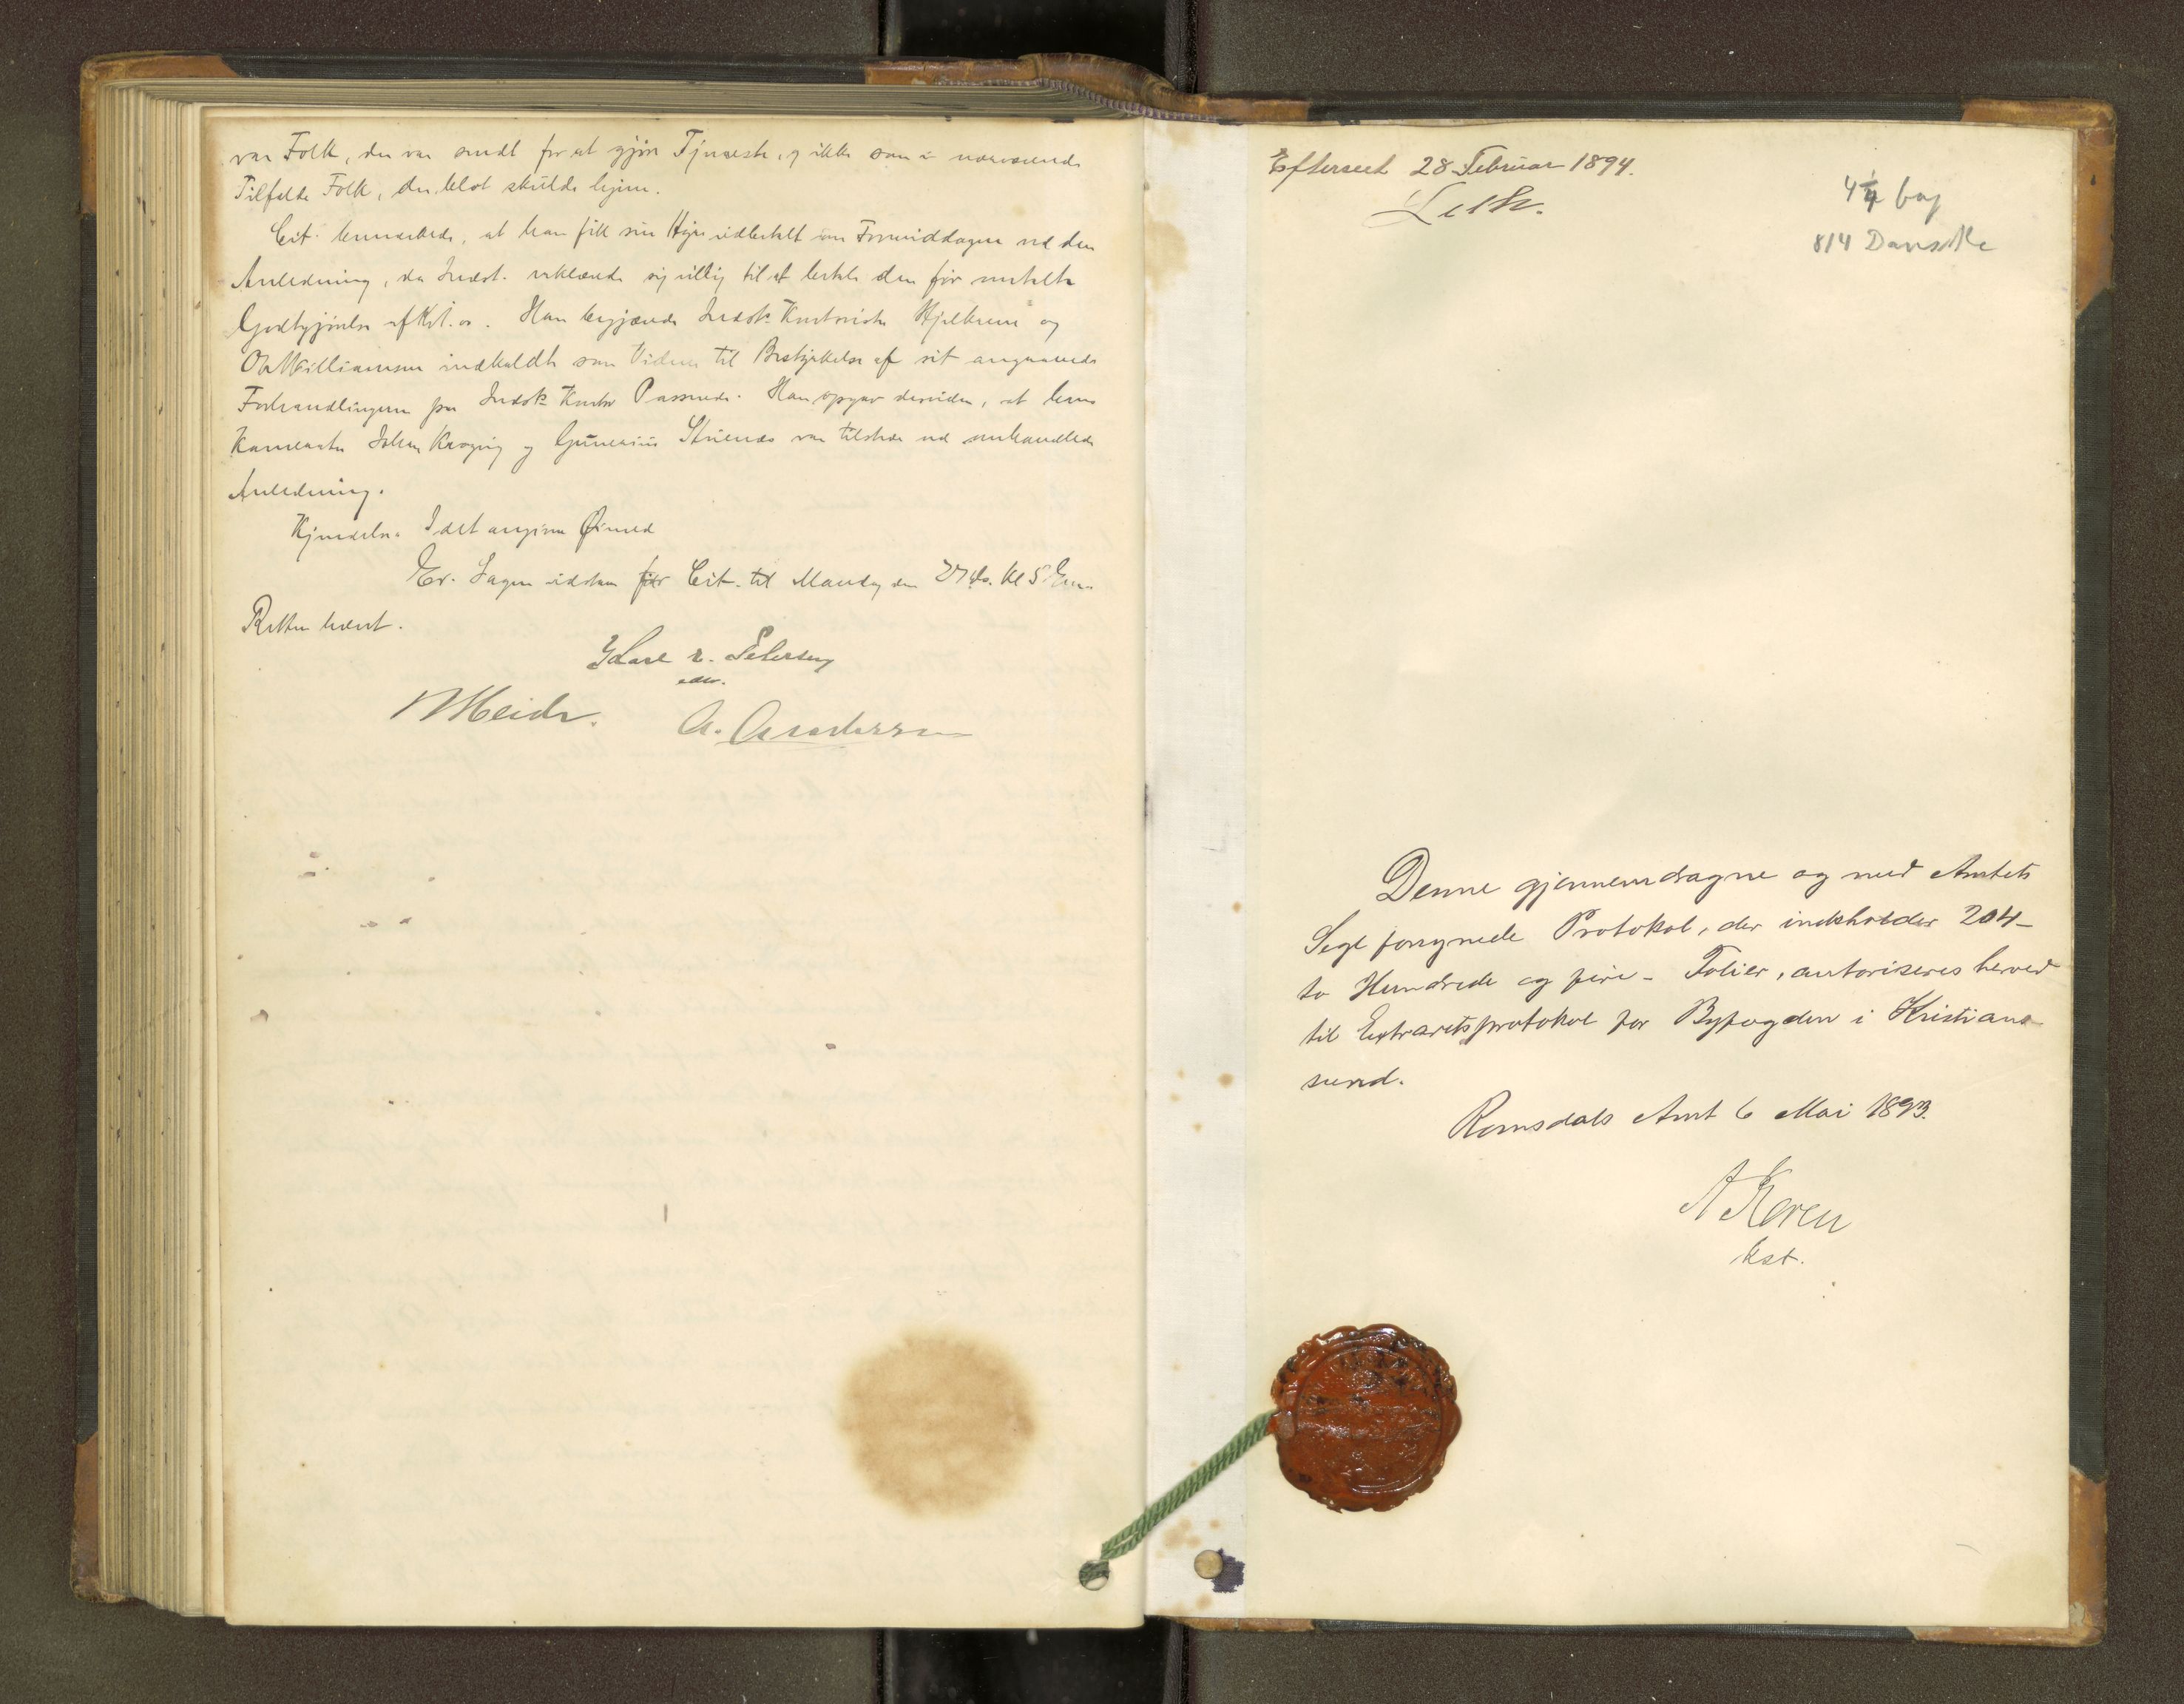 var Folk, der var sendt for at gjøre Tjeneste, og ikke som i nærværende
Tilfælde Folk, der blot skulde hjem.
Cit. bemærkede, at han fik sin Hyre udbetalt om Formiddagen ved den
Anledning, da Indst. erklærede sig villig til at betale den før omtalte
Godtgjørelse af Kr. Han begjærede Indst. Kontorist Hjelkrem og
O Williamsen indkaldt som Vidner til Bestyrkelse af sit angaaende
Forhandlingerne paa Indst. Kontor Passerede. Han opgav desuden, at hans
Kamerater Johan og Gunerius var tilstede ved omhandlede
Anledning.
Kjendelse. I det angivne Øiemed
Er. Sagen udsat for Cit. til Mandag den 27 ds. Kl 5 Em.
Retten hævet.
Petersen
edsv.
M Heide. A. Andersen
Efterseet 28 Februar 1894.
Leth.
4 1/4 bog
814 Danske
Denne gjennemdragne og med Amtets
Segl forsynede Protokol, der indeholder 204 -
to Hundrede og fire - Folier, autoriseres herved
til Extraretsprotokol for Byfogden i Kristians-
sund.
Romsdals Amt 6 Mai 1893.
A Koren
kst.